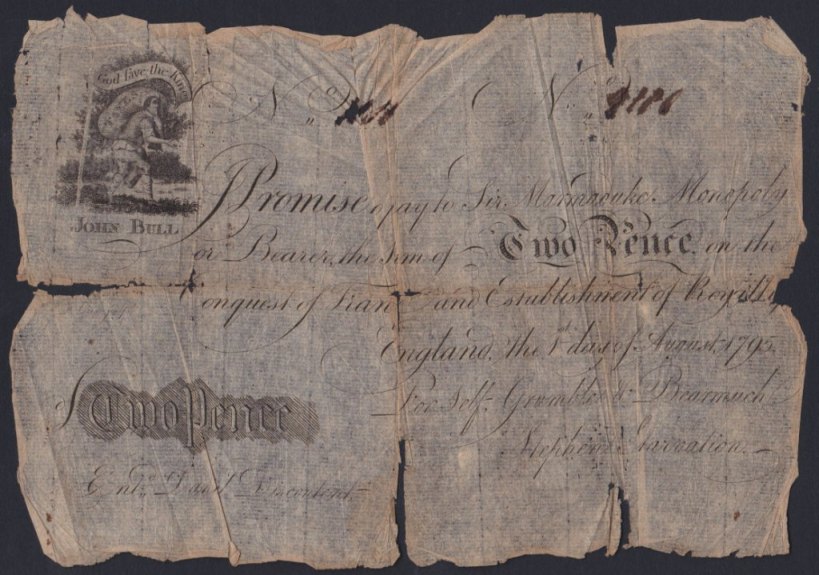 God save the King
JOHN BULL
No
No
I Promise to pay to Sir Marmaduke Monopoly
or Bearer, the Sum of Two Pence on the
Conquest of Fran and Establishment of Royalty
England, the 1st day of August, 1795
For Self, Grumble & Bearmuch
Stephen Starvation.
Two Pence
Entd. Discontent